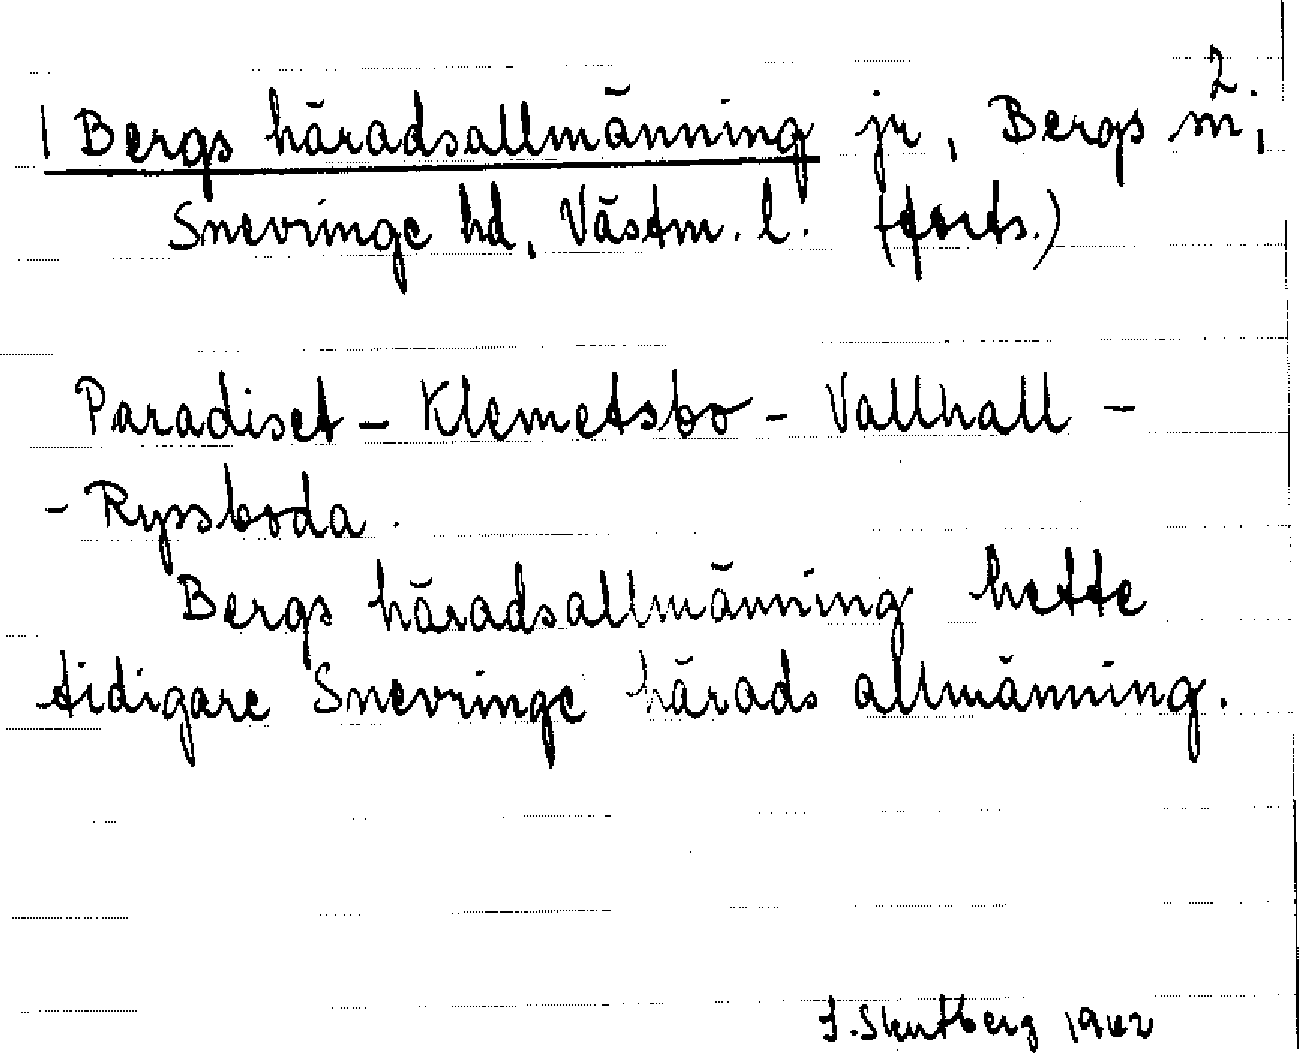 2.
| Bergs häradsallmänning jr, Bergs sn,
Snevringe hd, Västm. l. (forts.)
Paradiset - Klemetsbo - Vallhall -
- Ryssboda.
Bergs häradsallmänning hette
tidigare Snevringe härads allmänning.
1942